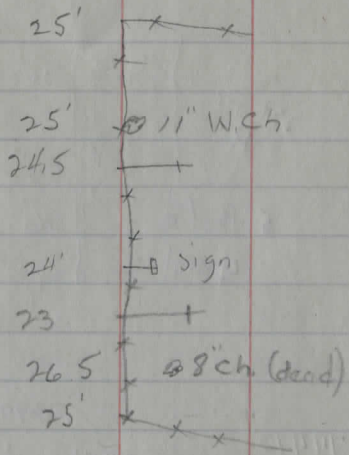 25'
25' 11" W.Ch.
24.5
24' Sign
23
26.5' 8" Ch. (dead)
25'